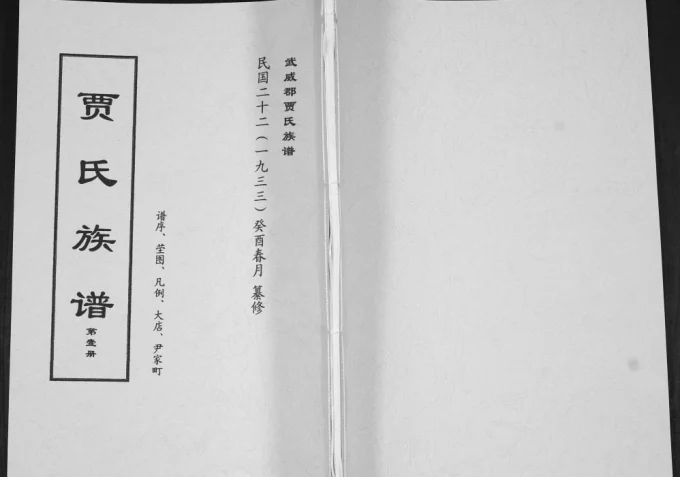 武威郡贾氏族谱
民国二十二（一九三三）癸酉春月 纂修
谱序、茔图、凡例、大店、尹家町
贾氏族谱
第壹册